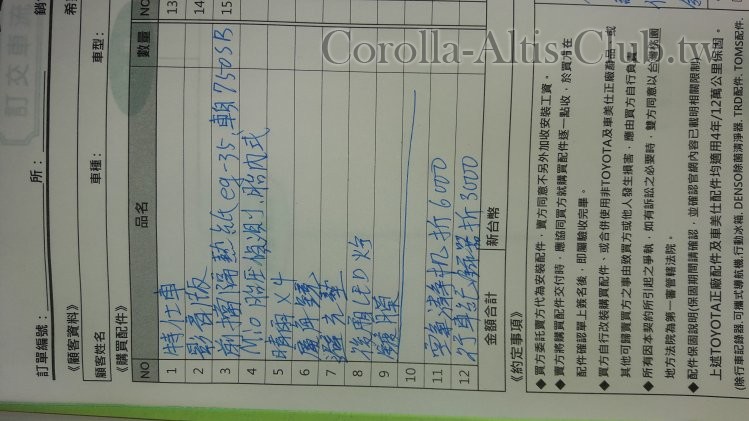 訂單編號：
所：
銷
《顧客資料》
希
顧客姓名
車種：
車型：
《購買配件》
NO 品名 數量 NO
1 特仕車 13
2 影音版 14
3 前擋隔熱紙 eg-35, 車身 750SB 15
4 Mio胎壓偵測, 胎內式
5 晴雨 X 4
6
7 避光墊
8 後閱LED燈
9
10
11 空氣清淨机 折6000
12 行車紀錄器 折3000
金額合計 新台幣
《約定事項》
◆ 買方委託買方代為安裝配件，賣方同意不另外加收安裝工資。
◆ 賣方將購買配件交付時，應協同買方就購買配件逐一點收，於買方在
配件確認單上簽名後，即屬驗收完畢。
◆ 買方自行改裝購買配件、或合併使用非TOYOTA及車美仕正廠商品，或
其他可歸責買方之事由致買方或他人發生損害，應由買方自行負責
◆ 所有因本契約所引起之爭執，如有訴訟之必要時，雙方同意以台灣桃園
地方法院為第一審管轄法院。
◆ 配件保固說明(保固期間請確認，並確認官網內容已載明相關限制)
上述TOYOTA正廠配件及車美仕配件均適用4年/12萬公里保固。
(除行車記錄器.可攜式導航機.行動冰箱.DENSO除菌清淨器.TRD配件.TOMS配件.
Corolla-Altis-Club.tw